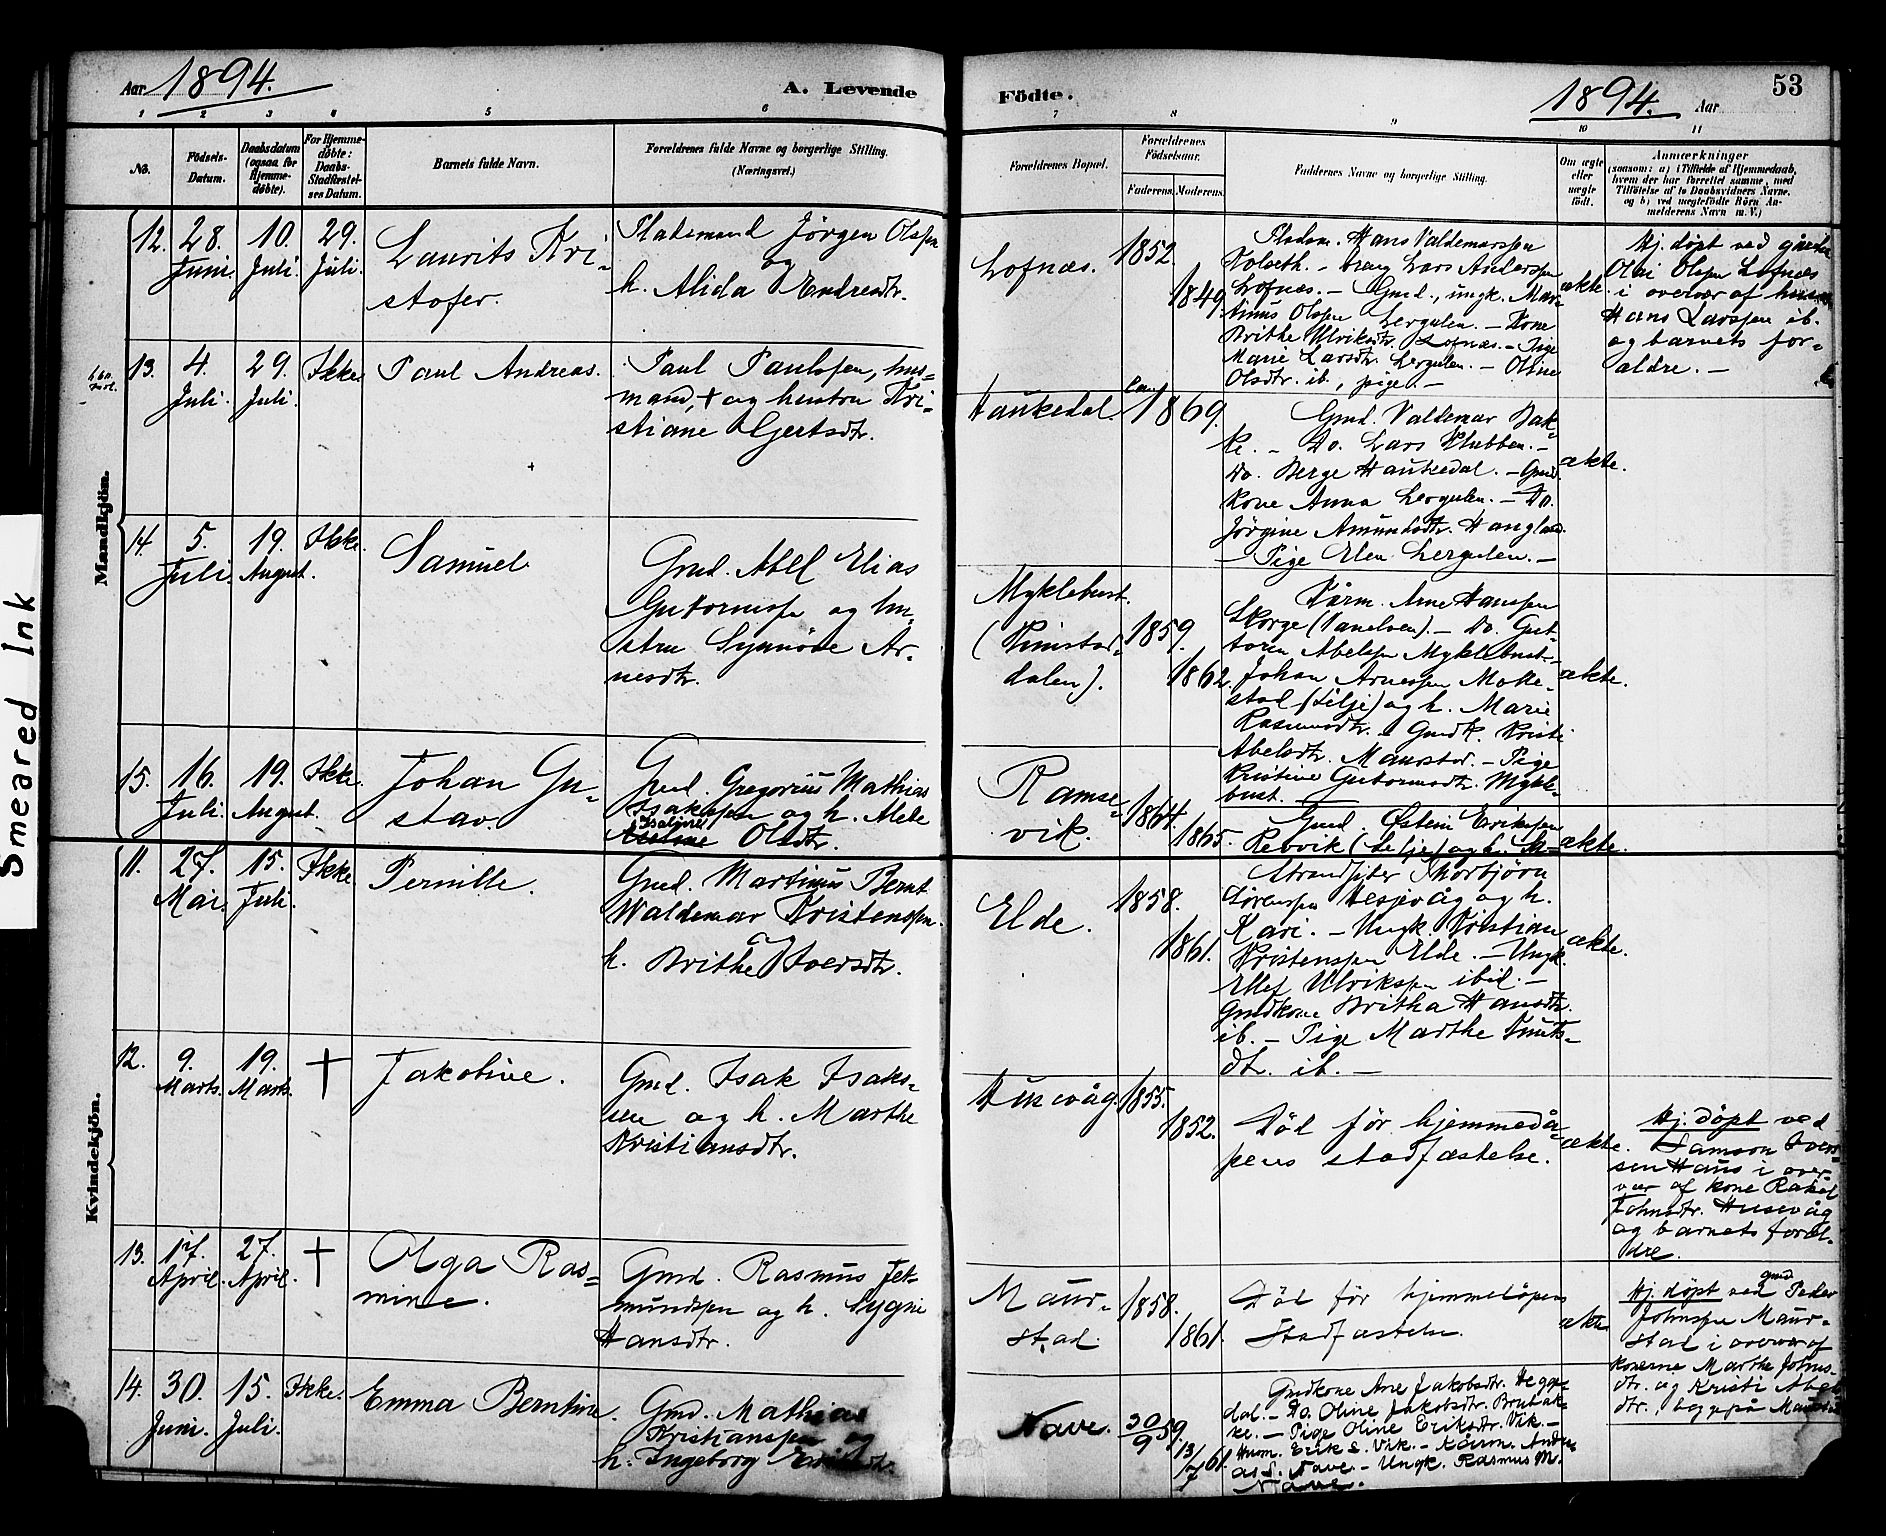 Smeared Ink
Aar 1894.
A. Levende
Födte.
1894. Aar
53
1 2 3 4 5 6 7 8 9 10 11
No.
Födsels-
Datum.
Daabsdatum
(ogsaa for
Hjemme-
døbte).
For Hjemme-
døbte:
Daabs-
Stadfæstel-
ses Datum.
Barnets fulde Navn.
Forældrenes fulde Navne og borgerlige Stilling.
(Næringsvei.)
Forældrenes Bopæl.
Forældrenes
Födselsaar.
Faderens. Moderens.
Faddernes Navne og borgerlige Stilling.
Om ægte
eller
uægte
født.
Anmærkninger
(saasom: a) i Tilfælde af Hjemmedaab,
hvem der har forrettet samme, med
Tilföielse af to Daabsvidners Navne,
og b) ved uægtefödte Börn An-
melderens Navn m. V.)
Mandkjön.
12. 28. Juni. 10. Juli. 29. Juli.
Laurits Kri-
stofer.
Pladsmand Jørgen Olsen
og
h. Alida Endresdtr.
Lofnæs.
1852.
1849.
Pladsm. Hans Valdemarssen
Lofnæs. - Gmd., ungk. Mar-
tinus Olssen Lergulen. - Kone
Brithe Ulriksdtr. Lofnæs. - Pige
Marie Larsdtr. Lergulen. - Oline
Olsdtr. ib., pige. -
ækte.
Hj. døpt ved
Olai Olssen Lofnæs
i overvær af
Hans Larssen ib.
og barnets for-
ældre. -
13. 4. Juli. 29. Juli. Ikke.
Paul Andreas.
Paul Paulssen, hus-
mand, + og hustru Kri-
stiane Gjertsdtr.
Haukedal.
1869.
Gmd. Valdemar Bak-
ke. - Do. Lars Klubben. -
Do. Berge Haukedal. - Gmd
kone Anna Lergulen. - Do.
Jørgine Amundsdtr. Hangland.
- Pige Elen Lergulen. -
ækte.
14. 5. Juli. 19. August. Ikke.
Samuel.
Gmd. Abel Elias
Guttormssen og hu-
stru Synnøve Ar-
nesdtr.
Myklebust.
(Rimstad-
dalen).
1859.
1862.
Kårm. Arne Hanssen
Skorge (Vanelven). - Do. Gut-
torm Abelssen Myklebust. -
Johan Arnessen Moke-
stad (Selje) og h. Marie
Rasmusdtr. - Gmdk. Kristi
Abelsdtr. Maurstad. - Pige
Kristine Guttormsdtr. Mykle-
bust. -
ækte.
15. 16. Juli. 19. August. Ikke.
Johan Gu-
stav.
Gmd. Gregorius Mathias
Isakssen og h. Mele
Olsdtr.
Ramse-
vik.
1864.
1865.
Gmd. Østein Erikssen
Rebvik (Selje) og h. M-
ækte.
Kvindekjön.
11. 27. Mai. 15. Juli. Ikke
Pernille.
Gmd. Martinus Bernt
Waldemar Kristenssen.
og
h. Brithe Iversdtr.
Elde.
1858.
1861.
Strandsitter Thorbjørn
Sørenssen Hesjevåg og h.
Kari. - Ungk. Kristian
Kristenssen Elde. - Ungk.
Ellef Ulrikssen ibid. -
Gmdkone Britha Hansdtr.
ib. - Pige Marthe Knuts-
dtr. ib. -
ækte.
12. 9. Marts. 19. Marts. †
Jakobine.
Gmd. Isak Isaks-
sen og h. Marthe
Kristiansdtr.
Husevåg.
1855.
1852.
Död før hjemmedå-
pens stadfæstelse.
ækte.
Hj. döpt ved
Samson Iver-
sen Haus i over-
vær af kone Rakel
Johnsdtr. Husevåg
og barnets foræl-
dre.
13. 17. April. 27. April. †
Olga Ras-
mine.
Gmd. Rasmus Jet-
mundssen og h. Sygni
Hansdtr.
Maur-
stad.
1858.
1861.
Död før hjemmedåpens
Stadfæstelse.
ækte
gmd
Hj. döpt ved Peder
Johnssen Maur-
stad i overvær af
konerne Marthe Johns-
dtr. og Kristi Abels-
dtr., begge på Maurstad
14. 30. Juni. 15. Juli. Ikke.
Emma Berntine.
Gmd. Mathias
Kristianssen og
h. Ingeborg Eriksdtr.
Nave.
30/9 59.
13/7 61.
Gmdkone Ane Jakobsdtr. Hegge-
dal. - Do. Oline Jakobsdtr. Brubak-
ke. - Pige Oline Eriksdtr. Vik. -
Husm. Erik S. Vik. - Kårm. Andre-
as S. Nave. - Ungk. Rasmus M.
Nave.